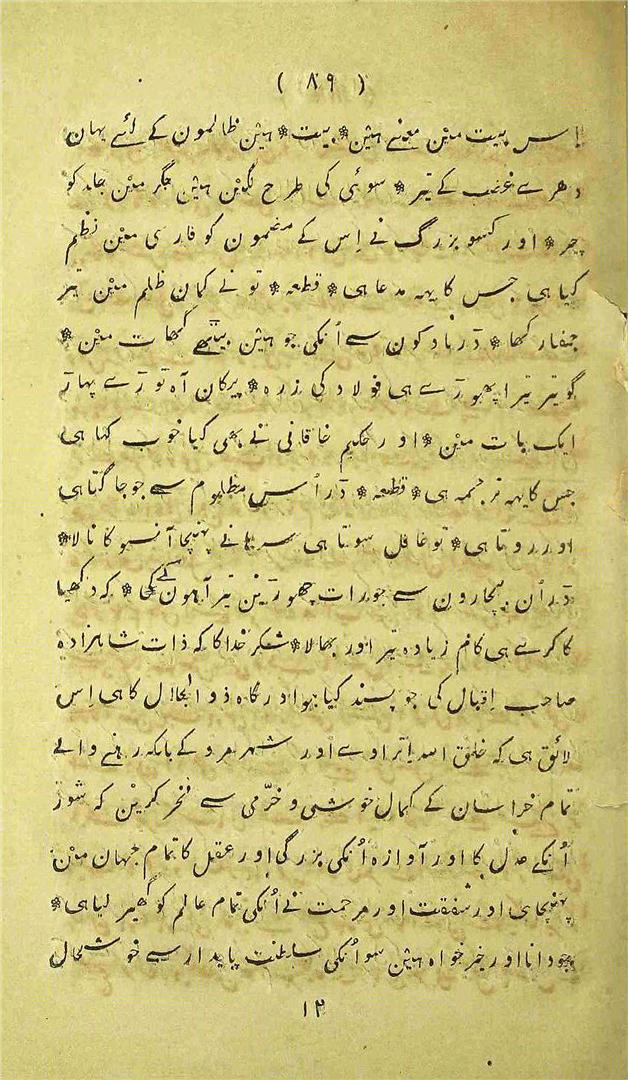 ( ۸۹ )
اِس بیت مین معنے هین * بیت * هین ظالمون کے لئے یهان
دهر سے غضب کے تیر * سوئی کی طرح لگین هین جگر مین جلد کو
چیر * اور کسو بزرگ نے اِس کے مضمون کو فارسی مین نظم
کیا هی جس کا یهه مدعا هی * قطعه * تو نے کمان ظلم مین تیر
جفا رکها * ڈر باد کون سے اُنکی جو هین بیٹهے گهات مین *
گو تیر تیرا پهوڑے هی فولاد کی زره * پیکان آه توڑے پهاڑ
ایک بات مین * اور حکیم خاقانی نے بهی کیا خوب کها هی
جس کا یهه ترجمه هی * قطعه * ڈر اُس مظلوم سے جو جاگتا هی
اور روتا هی * تو غافل سوتا هی سرهانے پهنچا آنسو کا نالا *
ڈر اُن بیچارون سے جو رات چهوڑین تیر آهون کے * که دکهیا
کا کرے هی کام زیاده تیر اور بهالا * شکر خدا کا که ذات شاهزاده
صاحب اِقبال کی جو پسند کیا هوا درگاه ذو الجلال کا هی اِس
لائق هی که خلق الله اِتراوے اور شهر مرو کے بلکه رهنے والے
تمام خراسان کے کمال خوشی و خرّمی سے فخر کرین که شور
اُنکے عدل کا اور آوازه اُنکی بزرگی اور عقل کا تمام جهان مین
پهنچا هی اور شفقت اور مرحمت نے اُنکی تمام عالم کو گهیر لیا هی *
جو دانا اور خیرخواه هین سو اُنکی سلطنت پایدار سے خوشحال
۱۲